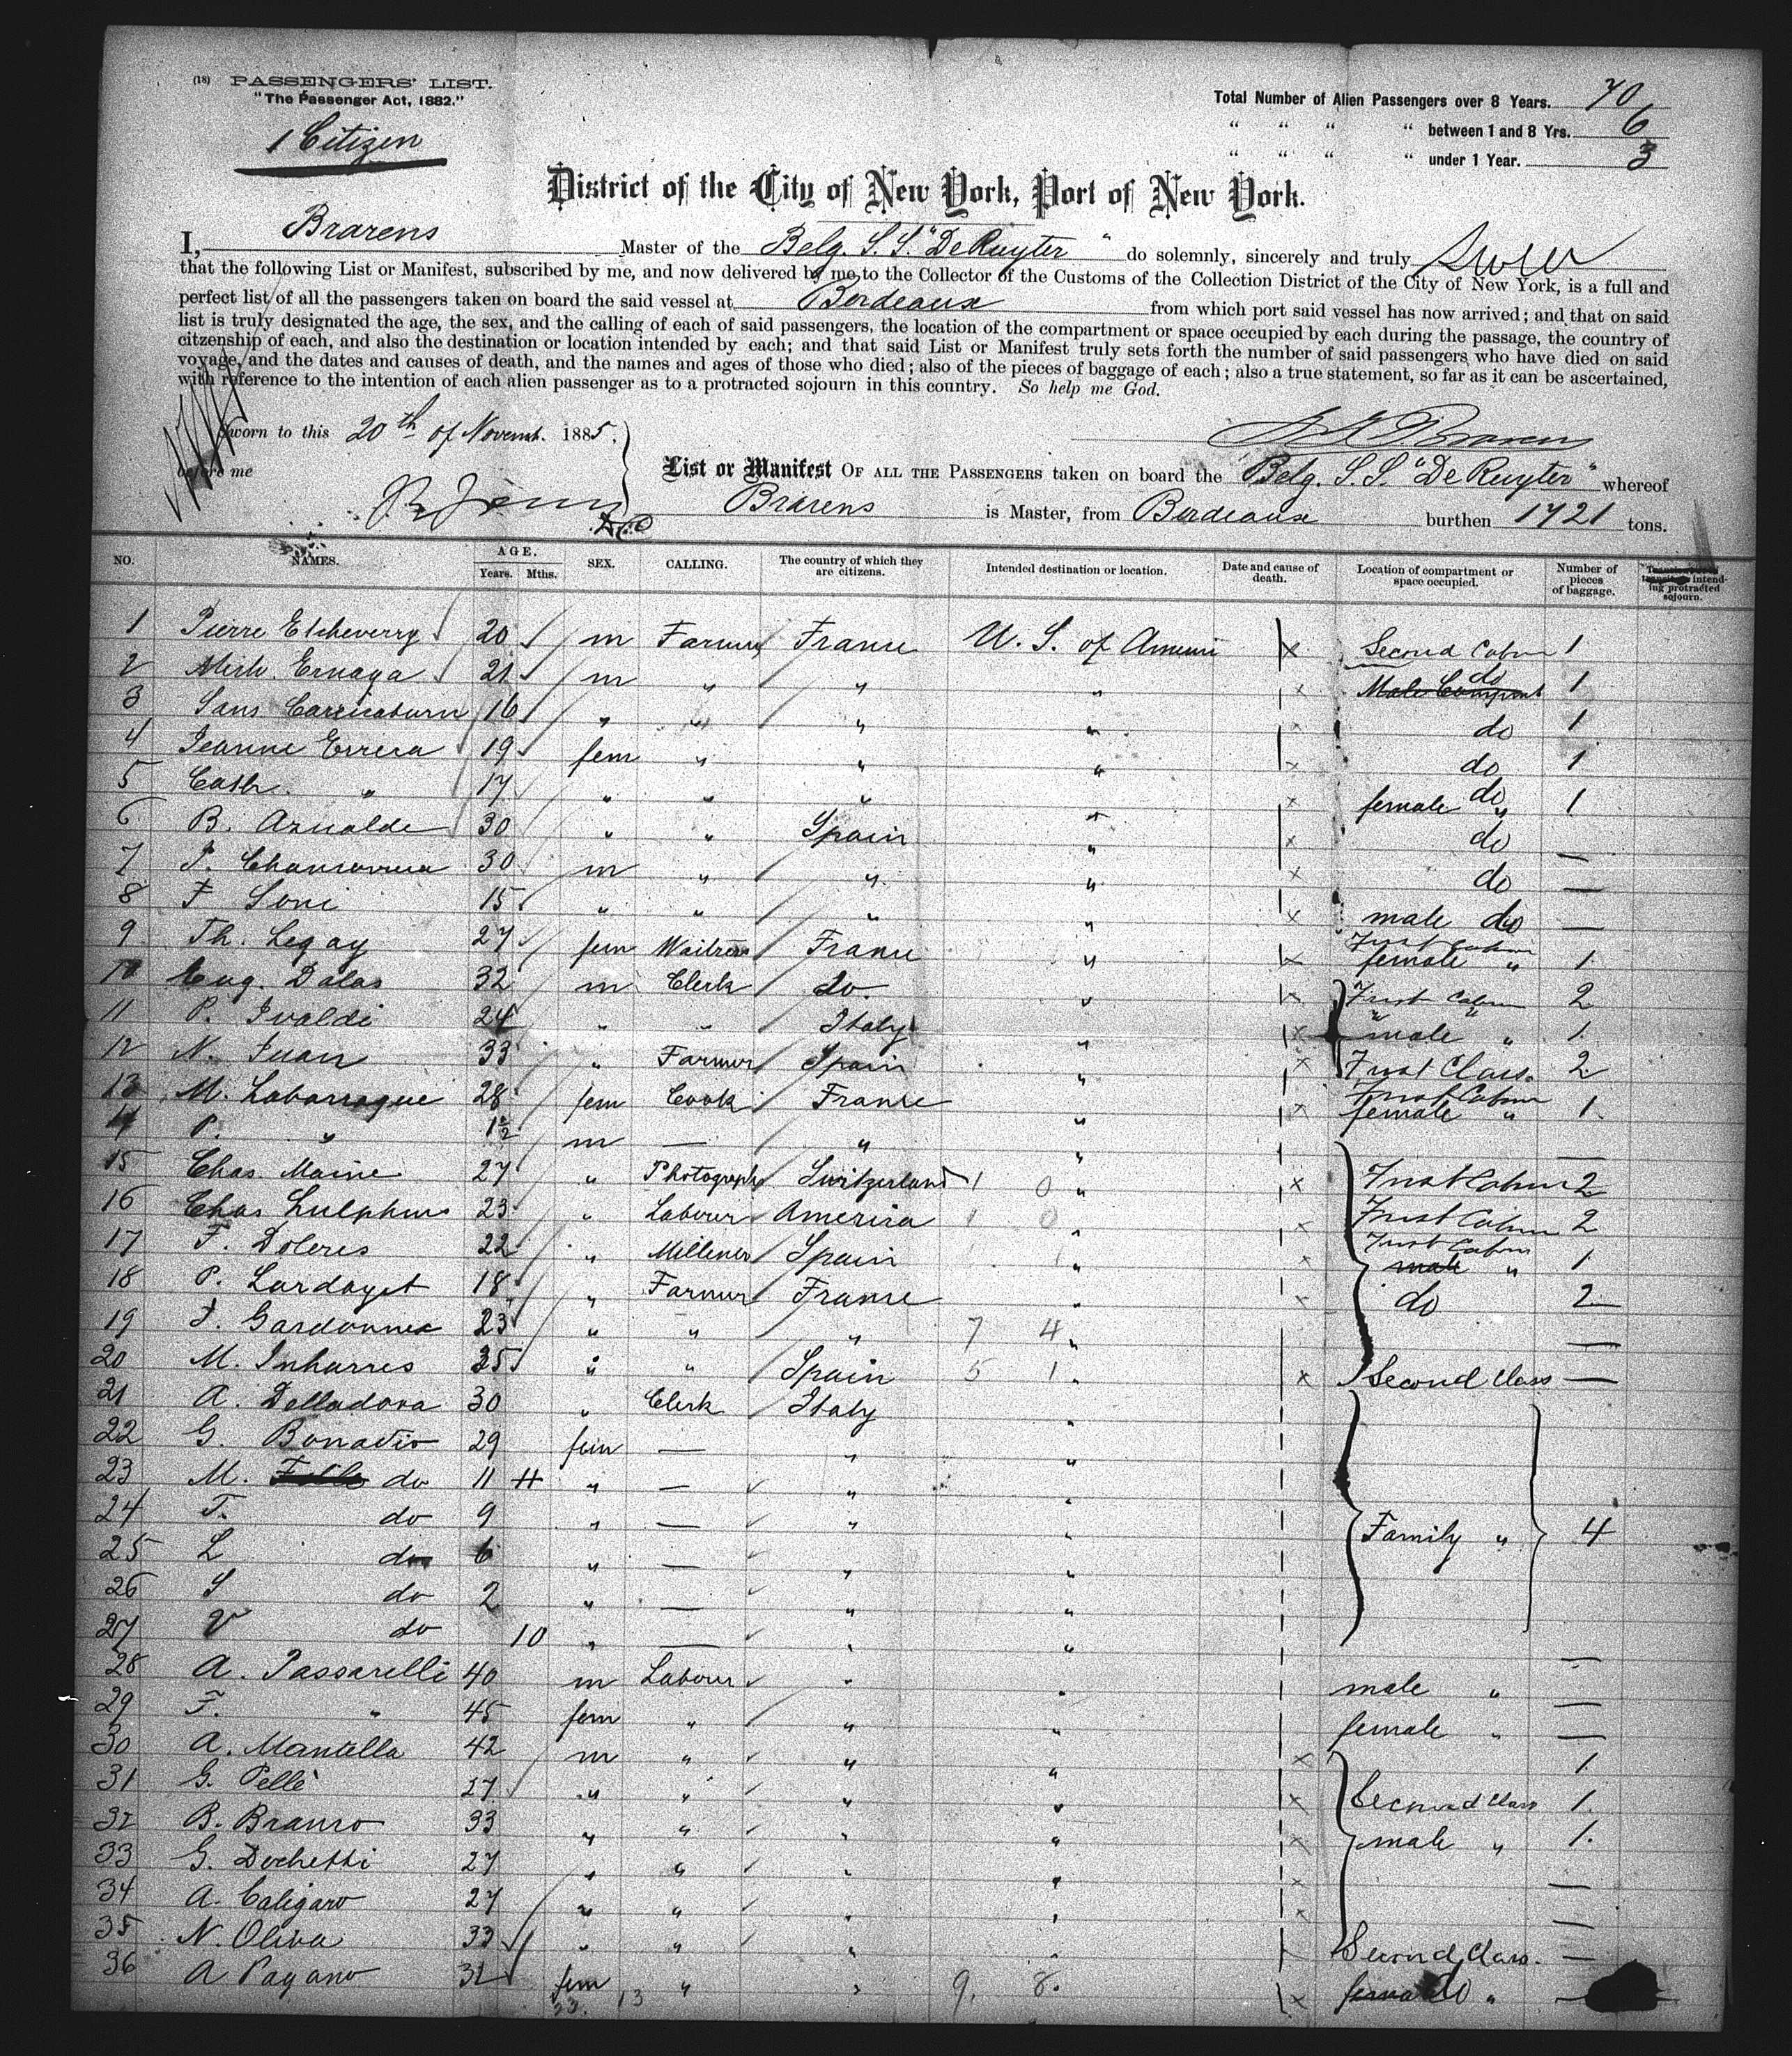 (18) PASSENGERS' LIST.
"The Passenger Act, 1882."
1 Citizen
Total Number of Alien Passengers over 8 Years. 70
" " " " between 1 and 8 Yrs. 6
" " " " under 1 Year. 3
District of the City of New York, Port of New York.
I, Brarens Master of the Belg. S.S. "De Ruyter" do solemnly, sincerely and truly swear
that the following List or Manifest, subscribed by me, and now delivered by me to the Collector of the Customs of the Collection District of the City of New York, is a full and
perfect list of all the passengers taken on board the said vessel at Bordeaux from which port said vessel has now arrived; and that on said
list is truly designated the age, the sex, and the calling of each of said passengers, the location of the compartment or space occupied by each during the passage, the country of
citzenship of each, and also the destination or location intended by each; and that said List or Manifest truly sets forth the number of said passengers who have died on said
voyage, and the dates and causes of death, and the names and ages of those who died; also of the pieces of baggage of each; also a true statement, so far as it can be ascertained,
with reference to the intention of each alien passenger as to a protracted sojourn in this country. So help me God.
Sworn to this 20th of Novemb. 1885.
Brarens
before me
List or Manifest OF ALL THE PASSENGERS taken on board the Belg. S.S. "De Ruyter" whereof
Brarens is Master, from Bordeaux burthen 1721 tons.
NO. NAMES. AGE. Years. Mths. SEX. CALLING. The country of which they are citizens. Intended destination or location. Date and cause of death. Location of compartment or space occupied. Number of pieces of baggage. intending protracted sojourn.
1 Pierre Etcheverry 20 m Farmer France U. S. of America Second Cabin 1
2 21 m " " " do 1
3 Sans 16 " " " " do 1
4 Jeanne Errera 19 fem " " " do 1
5 Cath. " 17 " " " " female do " 1
6 B. Arnalde 30 " " Spain " do —
7 30 m " " " do —
8 F Soni 15 " " " " male do —
9 Th. Legay 27 fem Waitress France " First Cabin female " 1
10 Eug. Dalas 32 m Clerk do. " First Cabin 2
11 P. Ivaldi 24 " " Italy " " male " 1
12 N. Juan 33 " Farmer Spain " First Class. 2
13 M. Labarraque 28 fem Cook France " First Cabin female " 1
14 P. " 1½ m — " " —
15 Chas. Maine 27 " Photograph Switzerland 1 0 " First Cabin 2
16 Chas Sulphur 23 " Labourer America 1 0 " First Cabin 2
17 F. Doleris 22 " Milliner Spain " First Cabin male " 1
18 P. Lardayet 18 " Farmer France " do 2
19 23 " " " 7 4 " —
20 M. Inharres 35 " " Spain 5 1 " Second Class —
21 A. Delladova 30 " Clerk Italy "
22 G. Bonavio 29 fem — " "
23 M. do 11 " — " "
24 F. do 9 " — " "
25 L do 6 " — " " Family " 4
26 S do 2 " — " "
27 V do 10 " — " "
28 A. Passarelli 40 m Labour " " male " —
29 F. " 45 fem " " " female " —
30 A. Mantella 42 m " " " 1
31 G. Pellè 27 " " " " Second Class 1.
32 B. Branro 33 " " " " male " 1.
33 G. Dochetti 27 " " " " —
34 A. Caligaro 27 " " " " —
35 N. Oliva 33 " " " " Second Class. —
36 A Pagano 32 fem " " 9, 8. do " —